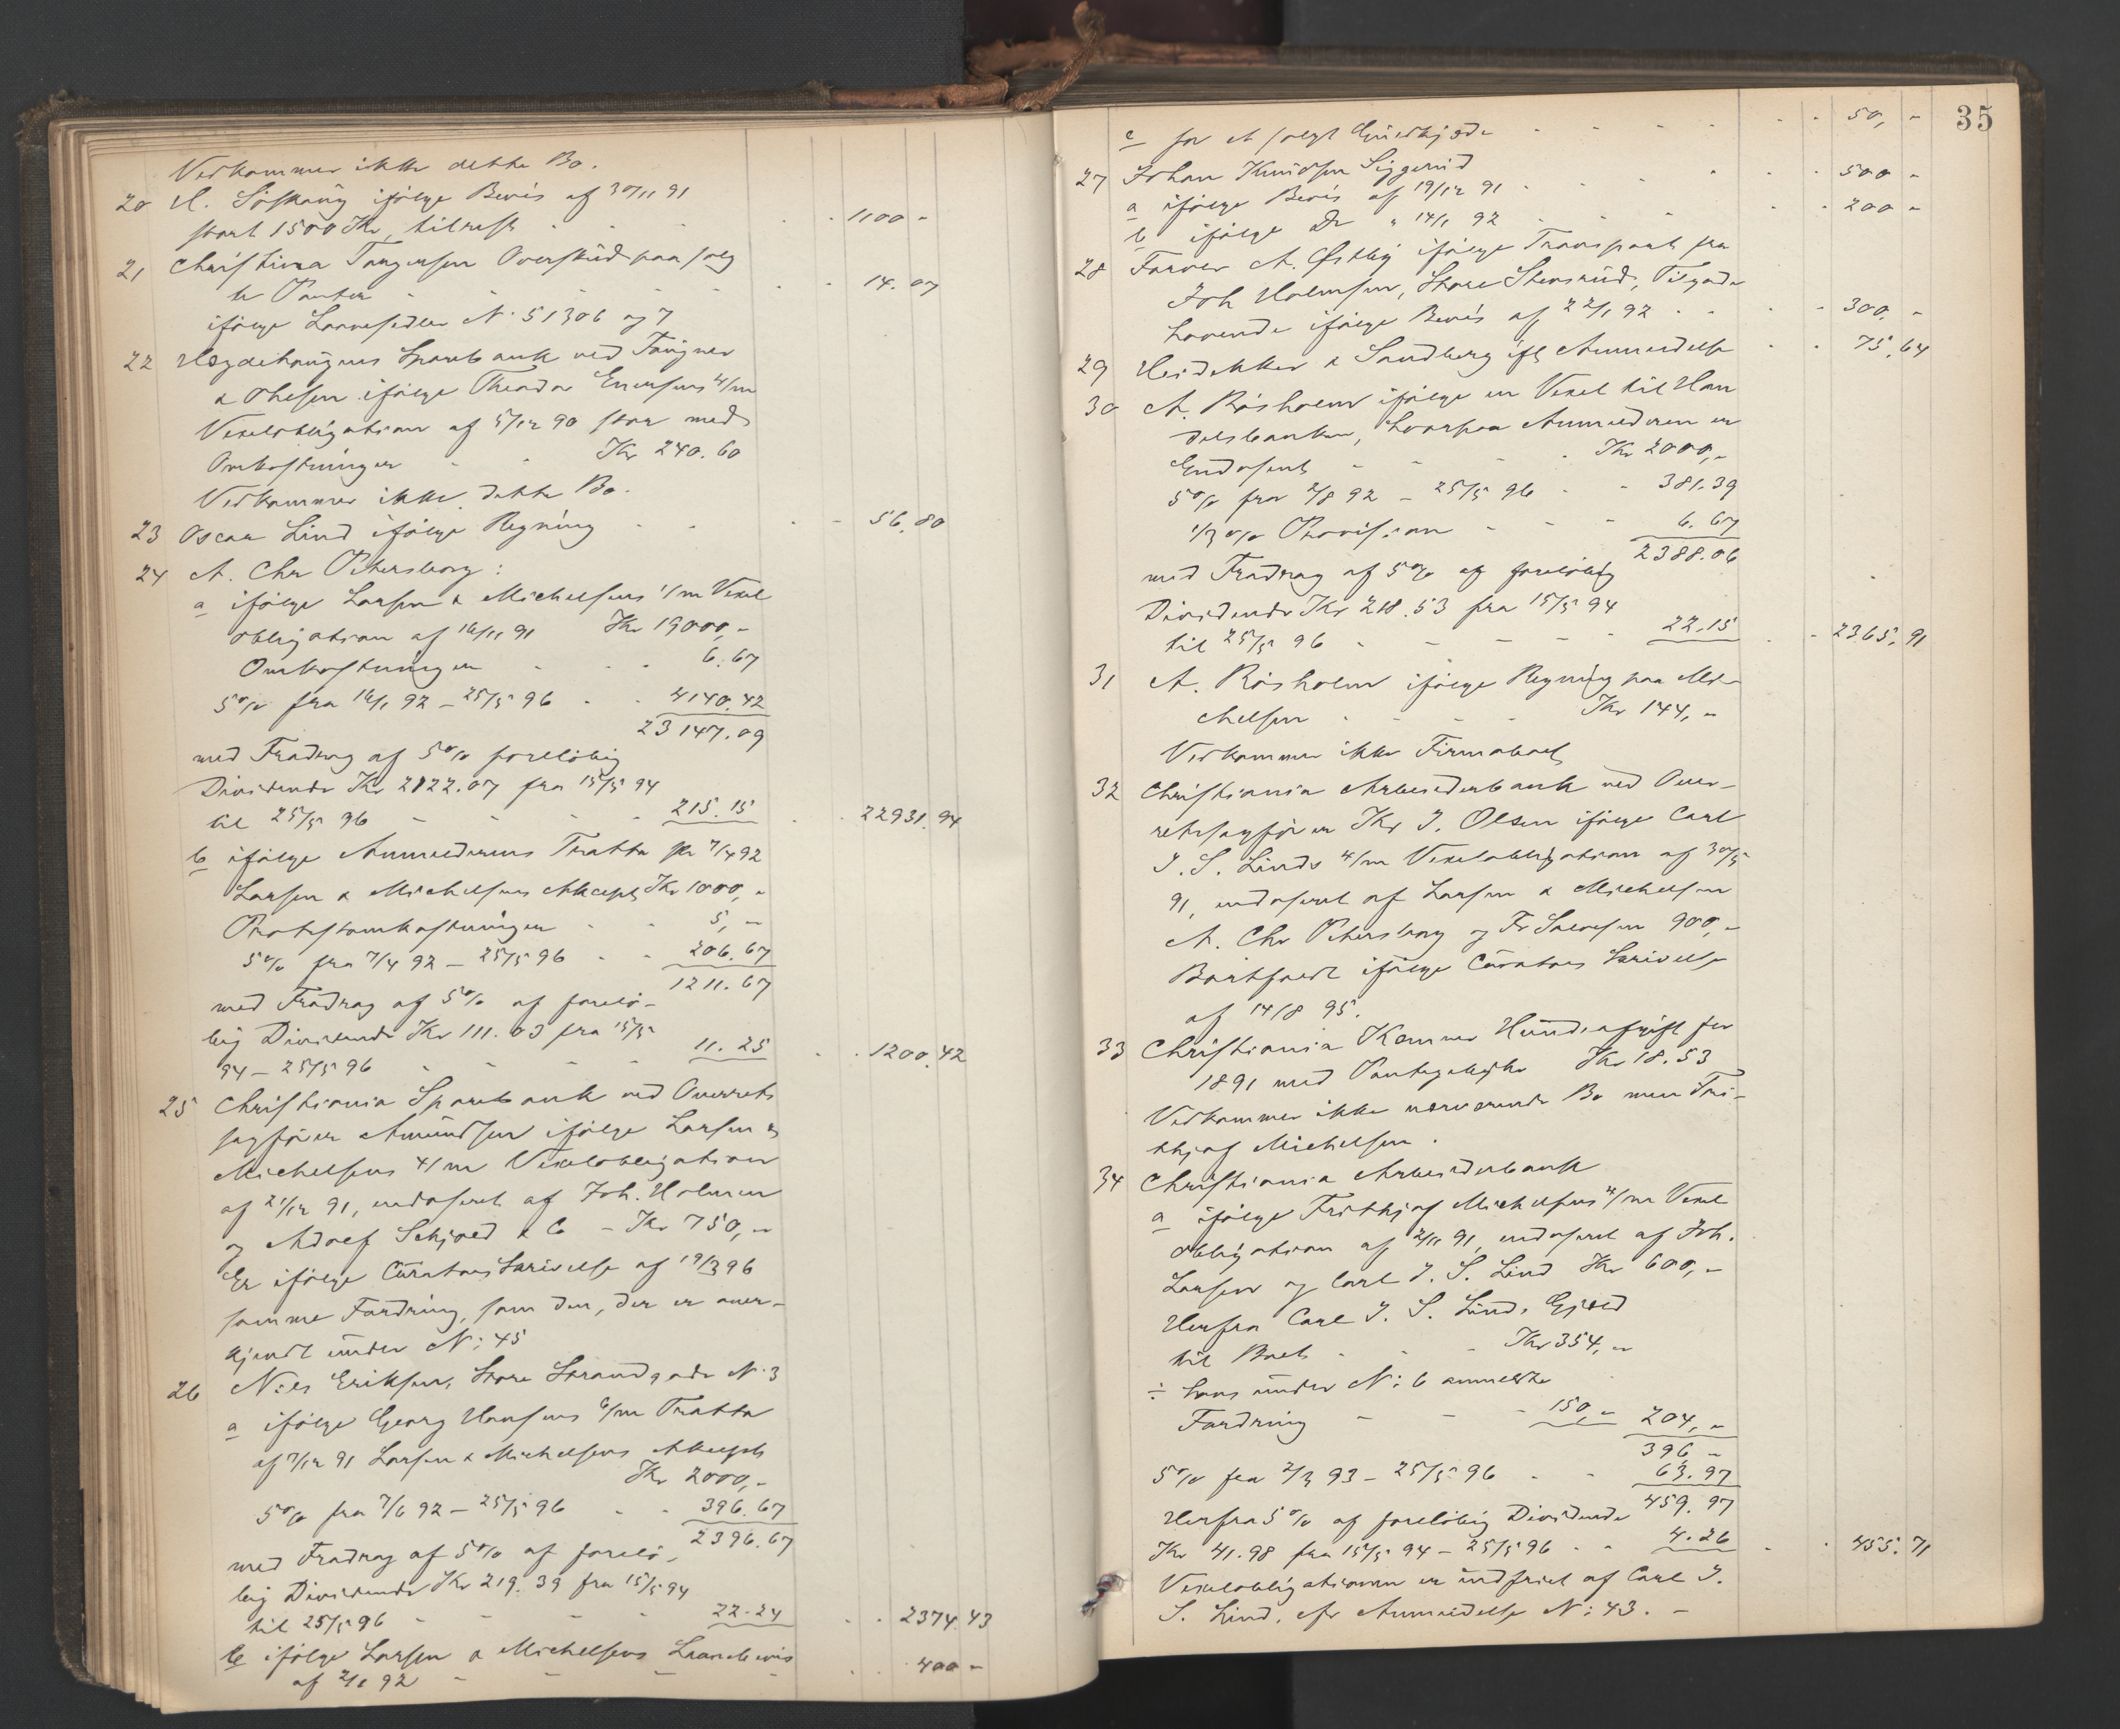 Vedkommer ikke dette Bo.
20 A. Söskaug ifölge Bevis af 30/11 91
stort 1500 Kr, tilrest - - - 1100 -
21 Christina Torgersen Overskud paa solg
te Panter - - - 14.07
ifölge Laanesedler N: 51306 og 7
22 Hægdehaugens Sparebank ved Taugner
& Olesen ifölge Theodor Enersens 4/m
Vexelobligation af 5/12 90 stor med
Omkostninger - - Kr 240.60
Vedkommer ikke dette Bo.
23 Oscar Lind ifölge Regning - - - 56.80
24 A. Chr Petersborg:
a ifölge Larsen & Michelsens 1/m Vexel
obligation af 16/11 91 Kr 19000,-
Omkostninger - - 6.67
5% fra 16/1 92 - 25/5 96 - - 4140.42
23147.09
med Fradrag af 5% foreløbig
Dividende Kr 2122.07 fra 15/5 94
til 25/5 96 - - - 215.15 - - 22931.94
b ifölge Anmelderens Tratta pr 7/4 92
Larsen & Michelsens Akcept Kr 1000,-
Protestomkostninger - - 5,-
5% fra 7/4 92 - 25/5 96 - - 206.67
1211.67
med Fradrag af 5% af forelö-
big Dividende Kr 111.03 fra 15/5
94 - 25/5 96 - - - 11.25 - - 1200.42
25 Christiania Sparebank ved Overrets
sagförer Amundsen ifölge Larsen &
Michelsens 4/m Vexelobligation
af 21/12 91, endoseret af Joh. Holmsen
og Adolf Schjøed & Co - Kr 750,-
Er ifölge Curators Skrivelse af 19/3 96
samme Fordring, som den, der er aner-
kjendt under N: 45
26 Nils Eriksen, Store Strandgade N: 3
a ifölge Georg Hansens 6/m Tratta
af 7/12 91 Larsen & Michelsens Akcept
Kr 2000,-
5% fra 7/6 92 - 25/5 96 - - 396.67
2396.67
med Fradrag af 5% af forelö-
big Dividende Kr 219.39 fra 15/5 94
til 25/5 96 - - - 22.24 - - 2374.43
b ifölge Larsen & Michelsens Laanebevis
af 2/1 92 - - - 400 -
35
c for et solgt - - - 50, -
27 Johan Knudsen Siggerud
a ifölge Bevis af 19/12 91 - - - 500 -
b ifölge Do " 14/1 92 - - - 200 -
28 Farver A. Østby ifölge Transport fra
Joh Holmsen, Store Stensrud,
lovende ifölge Bevis af 22/1 92 - - 300, -
29 Heidekker & Sandberg ifl Anmeldelse - - 75,64
30 A. Rösholm ifölge en Vexel til Han
delsbanken, hvorpaa Anmelderen er
Endosent - - - Kr 2000,-
5% fra 2/8 92 - 25/5 96 - - 381.39
1/3 % Provision - - - 6.67
2388.06
med Fradrag af 5% af foreløbig
Dividende Kr 218.53 fra 15/5 94
til 25/5 96 - - - 22.15 - - 2365,91
31 A. Rösholm ifölge Regning paa Mi-
chelsen - - - Kr 144,-
Vedkommer ikke Firmaboet
32 Christiania Arbeiderbank ved Over-
retssagförer Kr J. Olsen ifölge Carl
J. S. Linds 4/m Vexelobligation af 30/5
91, endoseret af Larsen & Michelsen
A. Chr Petersborg og Fr Salvesen 900,-
Bortfaldt ifölge Curators Skrivelse
af 14/8 95.
33 Christiania Kemner Hundeafgift for
1891 med Pantegebyhr Kr 18.53
Vedkommer ikke nærværende Bo men Fri-
thjof Michelsen.
34 Christiania Arbeiderbank
a ifölge Frithjof Michelsens 4/m Vexel
obligation af 2/11 91, endoseret af Joh.
Larsen og Carl J. S. Lind Kr 600,-
Herfra Carl J. S. Linds Gjæld
til Boet - - - Kr 354,-
÷ hans under N: 6 anmeldte
Fordring - - - 150,- 204,-
396 -
5% fra 2/3 93 - 25/5 96 - - 63.97
459.97
Herfra 5% af foreløbig Dividende
Kr 41.98 fra 15/5 94 - 25/5 96 - - 4.26 - - 455.71
Vexelobligationen er indfriet af Carl J.
S. Lind, cfr Anmeldelse N: 43. -